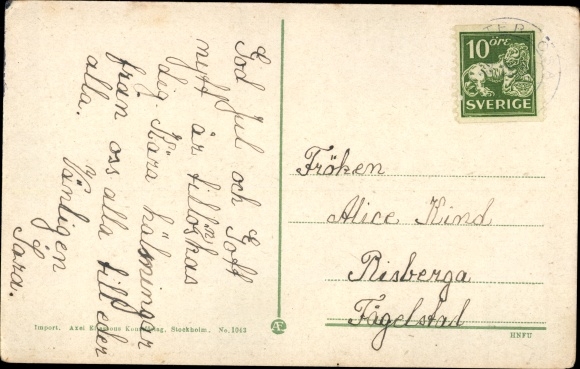 God Jul och Gott
nytt år tillönskas
dig Kära hälsningar
från oss alla till eder
alla.
Vänligen
Sara.
10 ÖRE
SVERIGE
Fröken
Alice Kind
Risberga
Fågelstad
Import. Axel Eliassons Konstförlag, Stockholm. No. 1043
HNFU